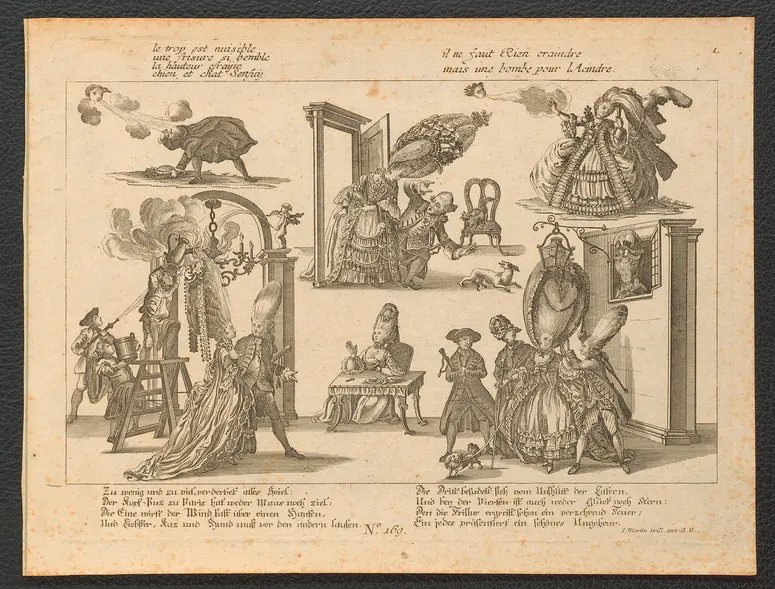 le trop est nuisible
une frisure si bemble
la hauteur efraye
chien et chat Senfuÿ
il ne faut Rien craindre
mais une bombe pour l'Aeindre.
1.
Zu wenig und zu viel, verderbet alles Spiel:
Der Kopf-Puz zu Paris hat weder Maas noch ziel:
Die Eine wirft der Wind fast über einen Hauffen,
Und Liebster, Kaz und Hund muß vor den andern lauffen.
Die Dritt besudelt sich vom Unschlitt der Latern.
Und bey der Vierten ist auch weder Glück noch Stern:
Den die Frissur ergreifft schon ein verzehrend Feuer;
Ein jedes präsentiert ein schönes Ungeheur.
No. 169.
J. Martin Will exc. A.V.